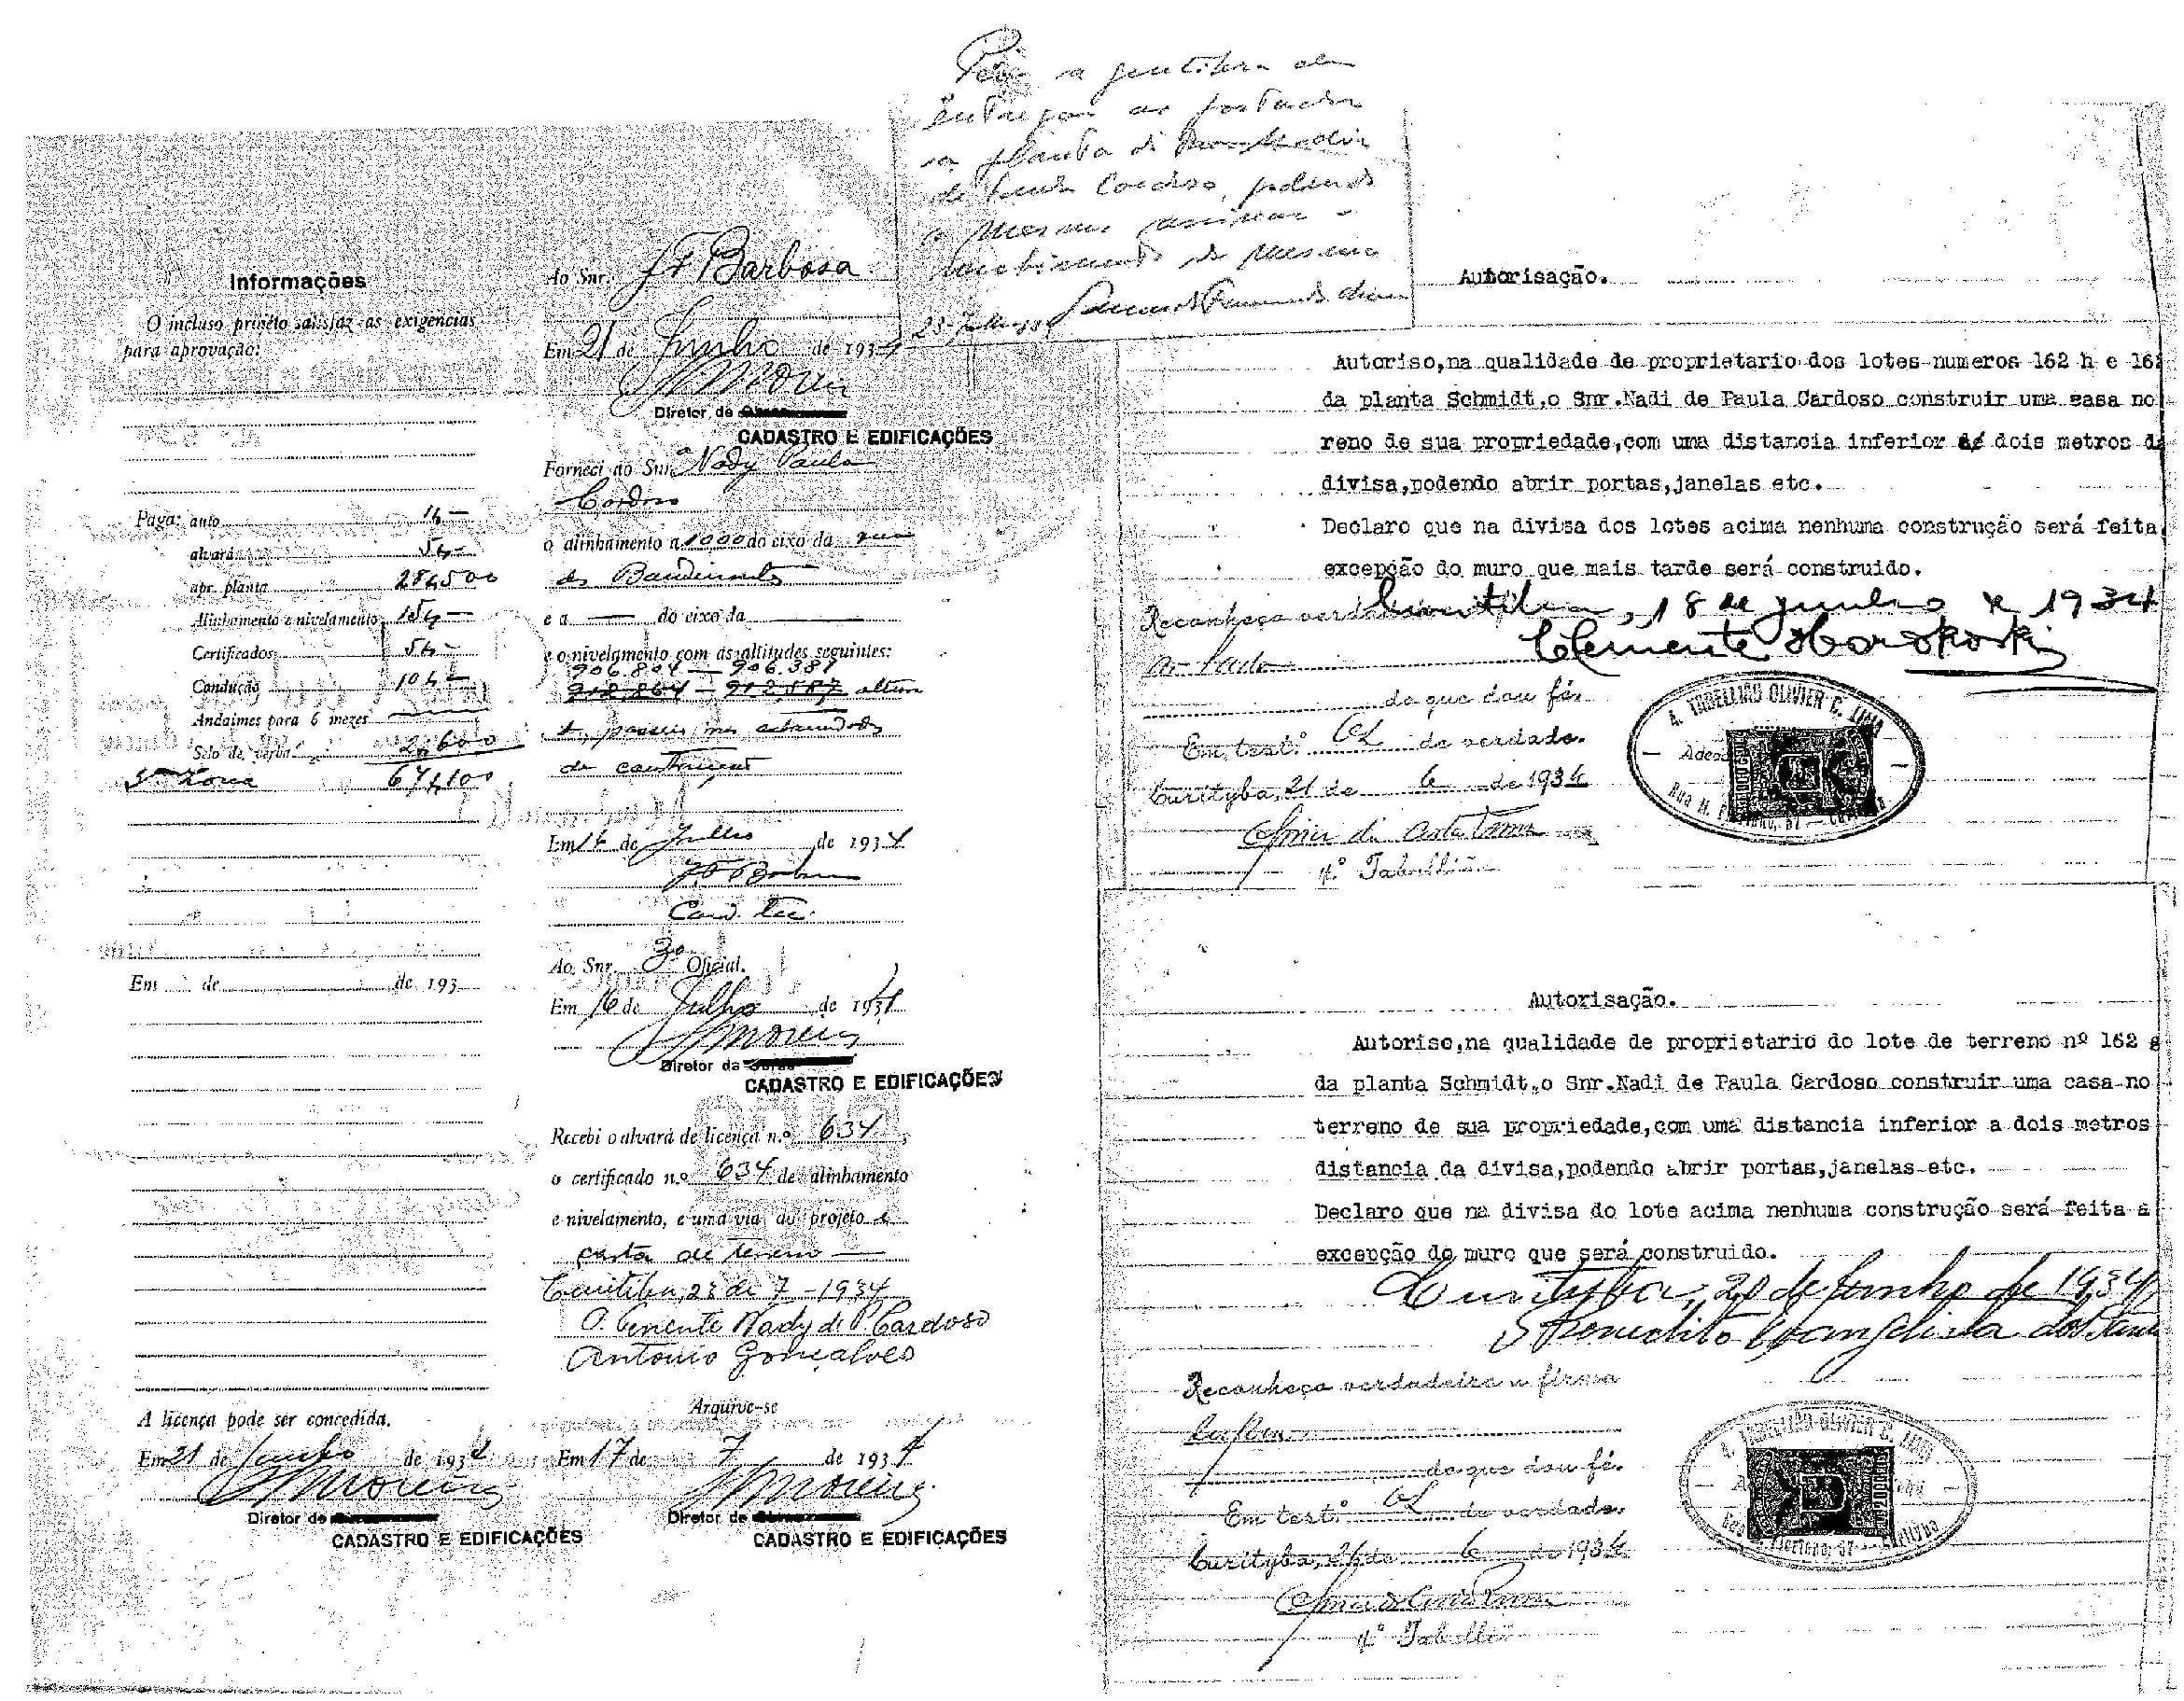 a gentileza de
entregar ao portador
a planta de
de Paula Cardoso, podendo
o mesmo assinar o
recebimento da mesma
Informações
O incluso projéto satisfaz as exigencias
para aprovação:
Paga: auto 1$—
alvará 5$—
apr. planta 28$500
Alinhamento e nivelamento 15$—
Certificados 5$—
Condução 10$—
Andaimes para 6 mezes —
Selo de verba 2$600
67$100
Em de de 193
A licença pode ser concedida.
Em 21 de Junho de 1934
Diretor de
CADASTRO E EDIFICAÇÕES
Ao Snr. Barbosa
Em 21 de Junho de 1934
Diretor de
CADASTRO E EDIFICAÇÕES
Forneci ao Snr. Nady Paula
Cardoso
o alinhamento a 1000 do eixo da rua
dos Bandeirantes
e a — do eixo da —
e o nivelamento com as altitudes seguintes:
906.804 — 906.387
912.864 – 912.587
Em 16 de Julho de 1934
Ao Snr. 3º Oficial.
Em 16 de Julho de 1934
Diretor da
CADASTRO E EDIFICAÇÕES
Recebi o alvará de licença n.º 634,
o certificado n.º 634 de alinhamento
e nivelamento, e uma via do projeto e
Curitiba, 23 de 7 - 1934
Nady de P. Cardoso
Antonio Gonçalves
Arquive-se
Em 17 de 7 de 1934
Diretor de
CADASTRO E EDIFICAÇÕES
Autorisação.
Autoriso,na qualidade de proprietario dos lotes numeros 162 h e 16
da planta Schmidt,o Snr.Nadi de Paula Cardoso construir uma casa no
reno de sua propriedade,com uma distancia inferior de dois metros d
divisa,podendo abrir portas,janelas etc.
Declaro que na divisa dos lotes acima nenhuma construção será feita
excepção do muro que mais tarde será construido.
Curitiba, 18 de junho de 1934
Reconheço
Clemente
da que dou fé.
Em test.º da verdade.
Curityba, 21 de 6 de 1934
4º Tabellião
A. TABELLIÃO OLIVIER C. LIMA
Autorisação.
Autoriso,na qualidade de proprietario do lote de terreno nº 162 g
da planta Schmidt,o Snr.Nadi de Paula Cardoso construir uma casa no
terreno de sua propriedade,com uma distancia inferior a dois metros
distancia da divisa,podendo abrir portas,janelas etc.
Declaro que na divisa do lote acima nenhuma construção será feita a
excepção do muro que será construido.
Curityba, 20 de Junho de 1934
Benedito Evangelista dos
Reconheço verdadeira a firma
da que dou fé.
Em test.º da verdade.
Curityba, de 6 de 1934
4º Tabellião
A. TABELLIÃO OLIVIER C. LIMA